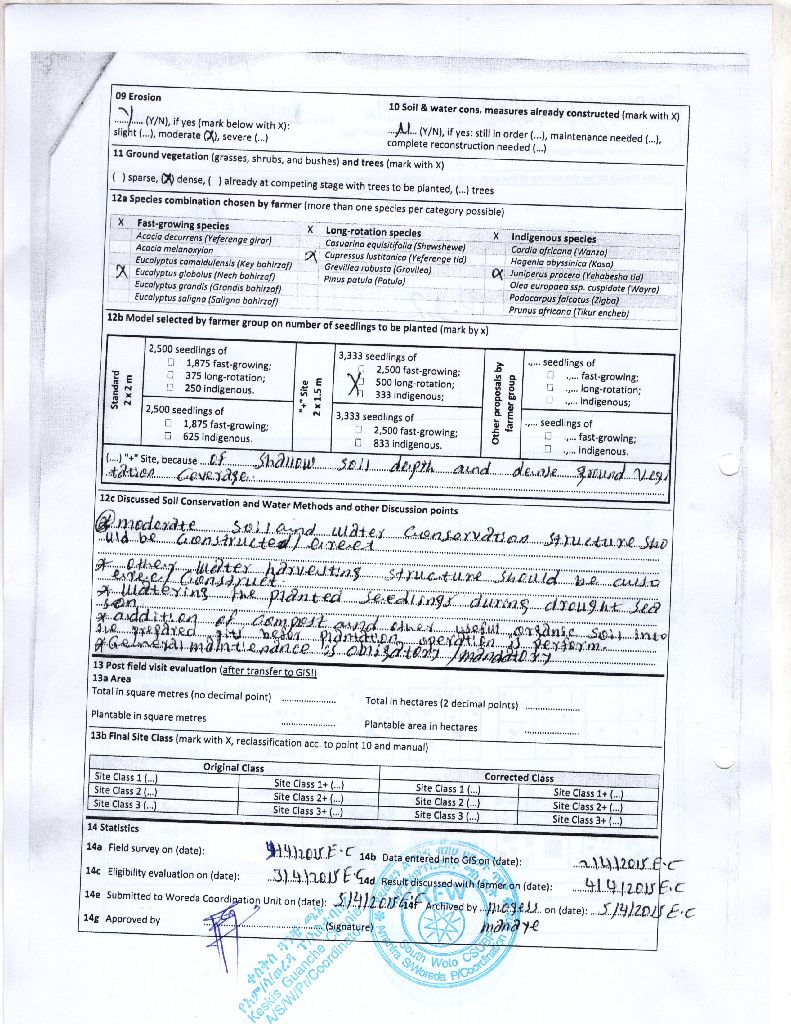 09 Erosion
10 Soil & water cons. measures already constructed (mark with X)
Y (Y/N), if yes (mark below with X):
N (Y/N), if yes: still in order (...), maintenance needed (...),
slight (...), moderate (X), severe (...)
complete reconstruction needed (...)
11 Ground vegetation (grasses, shrubs, and bushes) and trees (mark with X)
( ) sparse, (X) dense, ( ) already at competing stage with trees to be planted, (...) trees
12a Species combination chosen by farmer (more than one species per category possible)
X Fast-growing species
Acacia decurrens (Yeferenge girar)
Acacia melanoxylon
Eucalyptus camaldulensis (Key bahirzaf)
X Eucalyptus globolus (Nech bahirzaf)
Eucalyptus grandis (Grandis bahirzaf)
Eucalyptus saligna (Saligna bahirzaf)
X Long-rotation species
Casuarina equisitifolia (Shewshewe)
X Cupressus lustitanica (Yeferenge tid)
Grevillea robusta (Gravilea)
Pinus patula (Patula)
X Indigenous species
Cordia africana (Wanza)
Hagenia abyssinica (Koso)
X Juniperus procera (Yehabesha tid)
Olea europaea ssp. cuspidate (Wayra)
Podocarpus falcatus (Zigba)
Prunus africana (Tikur encheb)
12b Model selected by farmer group on number of seedlings to be planted (mark by x)
Standard
2 x 2 m
2,500 seedlings of
1,875 fast-growing;
375 long-rotation;
250 indigenous.
2,500 seedlings of
1,875 fast-growing;
625 indigenous.
"+" Site
2 x 1.5 m
3,333 seedlings of
2,500 fast-growing;
X 500 long-rotation;
333 indigenous;
3,333 seedlings of
2,500 fast-growing;
833 indigenous.
Other proposals by
farmer group
.,... seedlings of
.,... fast-growing;
.,... long-rotation;
.,... indigenous;
.,... seedlings of
.,... fast-growing;
.,... indigenous.
(....) "+" Site, because of shallow soil depth and dense ground vege
tation coverage.
12c Discussed Soil Conservation and Water Methods and other Discussion points
* moderate soil and water conservation structure sho
uld be constructed/ erect
* other water harvesting structure should be
erec/ construct.
* watering the planted seedlings during drought sea
son
* addition of compost and other useful organic soil into
the prepared pits befor plantation operation is perform.
* General maintenance is obligatory /mandatory
13 Post field visit evaluation (after transfer to GIS!)
13a Area
Total in square metres (no decimal point) ..................
Total in hectares (2 decimal points) ..................
Plantable in square metres ..................
Plantable area in hectares ..................
13b Final Site Class (mark with X, reclassification acc. to point 10 and manual)
Original Class
Corrected Class
Site Class 1 (...) Site Class 1+ (...) Site Class 1 (...) Site Class 1+ (...)
Site Class 2 (...) Site Class 2+ (...) Site Class 2 (...) Site Class 2+ (...)
Site Class 3 (...) Site Class 3+ (...) Site Class 3 (...) Site Class 3+ (...)
14 Statistics
14a Field survey on (date): /4/2015 E.C 14b Data entered into GIS on (date): 2/4/2015 E.C
14c Eligibility evaluation on (date): 3/4/2015 E.C 14d Result discussed with farmer on (date): 4/4/2015 E.C
14e Submitted to Woreda Coordination Unit on (date): 5/4/2015 14f Archived by mogess on (date): 5/4/2015 E.C
manaye
14g Approved by ..................(Signature)
KFW
South Wolo CSUP
Amhara S/Woreda P/Coordination
Keskis Guanche Chanie
A/S/W/Pr/Coordinator